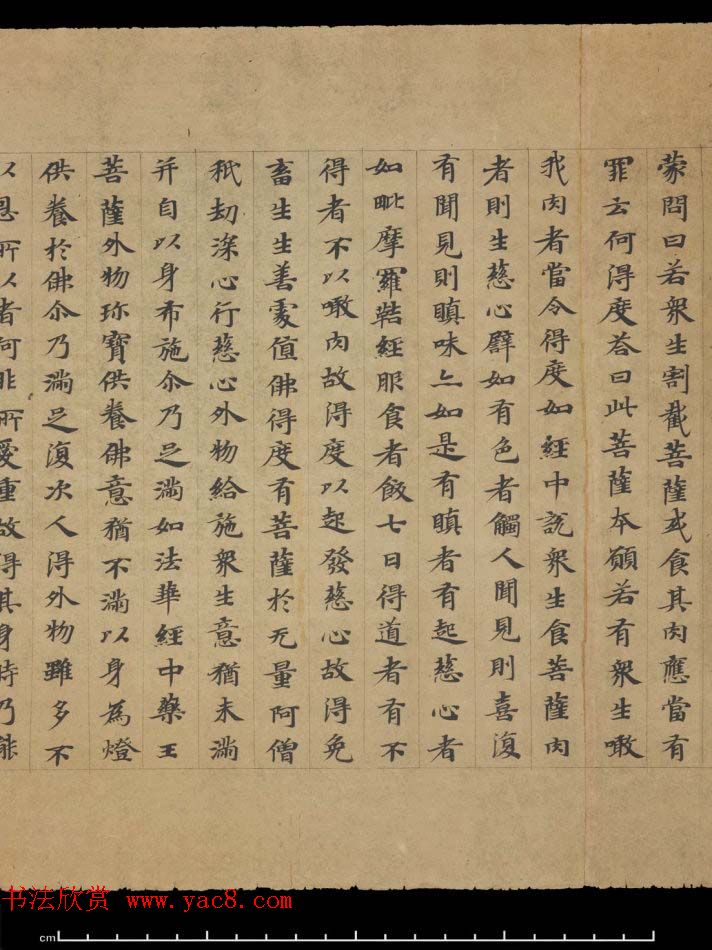 蒙問曰若衆生割截菩薩或食其肉應當有
罪云何得度荅曰此菩薩本願若有衆生噉
我肉者當令得度如經中說衆生食菩薩肉
者則生慈心譬如有色者觸人聞見則喜復
有聞見則瞋味亦如是有瞋者有起慈心者
如毗摩羅鞊經服食者飯七日得道者有不
得者不以噉肉故得度以起發慈心故得免
畜生生善處值佛得度有菩薩於无量阿僧
秖劫深心行慈心外物給施衆生意猶未滿
并自以身布施尒乃足滿如法華經中藥王
菩薩外物珎寶供養佛意猶不滿以身為燈
供養於佛尒乃滿足復次人得外物雖多不
以恩所以者何非所愛重故得其身時乃能
书法欣赏 www.yac8.com
cm